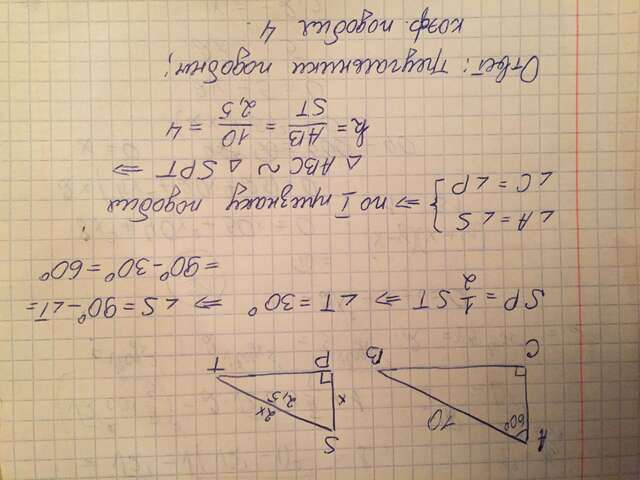 A
60°
10
C
B
S
x
2x
2,5
P
T
SP = 1/2 ST ⇒ ∠T = 30° ⇒ ∠S = 90° - ∠T =
= 90° - 30° = 60°
∠A = ∠S
∠C = ∠P } ⇒ по I признаку подобия
△ ABC ~ △ SPT ⇒
k = AB/ST = 10/2,5 = 4
Ответ: треугольники подобны;
коэф. подобия 4.